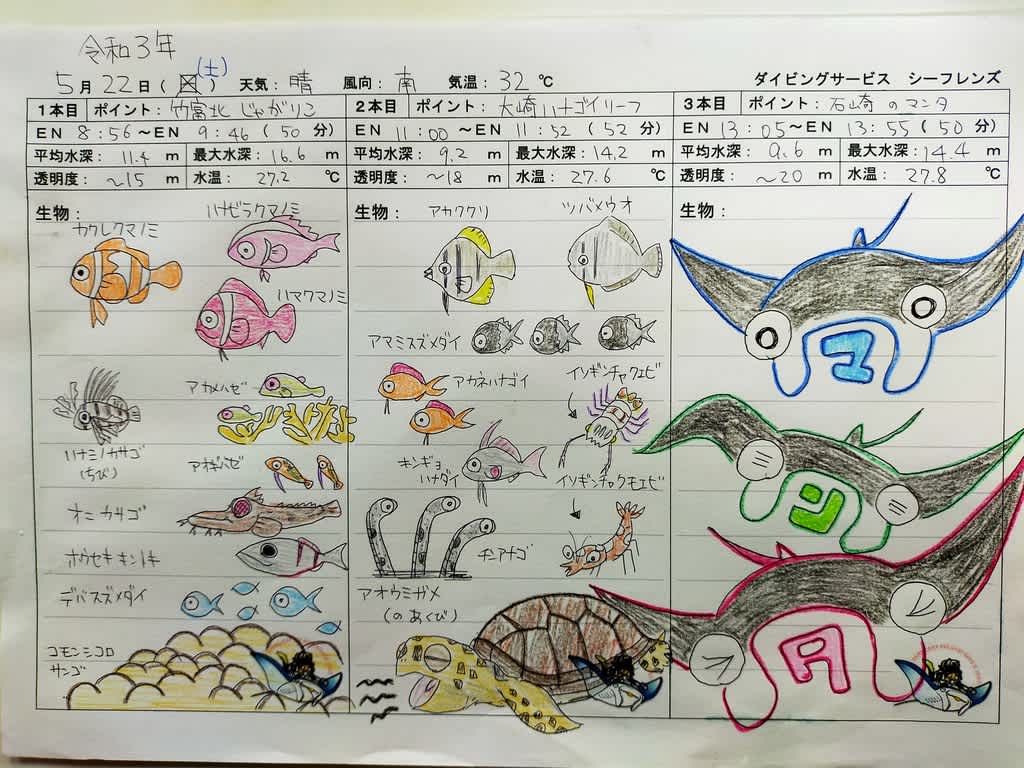 令和3年
5月22日(日) (土) 天気：晴 風向：南 気温：32℃ ダイビングサービス シーフレンズ
1本目 ポイント：竹富北 じゃがりこ
EN 8:56～EN 9:46 (50分)
平均水深：11.4 m 最大水深：16.6 m
透明度：～15 m 水温：27.2 ℃
生物：
ハナビラクマノミ
カクレクマノミ
ハマクマノミ
アカメハゼ
ハナミノカサゴ
(ちび)
アオギハゼ
オニカサゴ
ホウセキキントキ
デバスズメダイ
コモンシコロ
サンゴ
2本目 ポイント：大崎ハナゴイリーフ
EN 11:00～EN 11:52 (52分)
平均水深：9.2 m 最大水深：14.2 m
透明度：～18 m 水温：27.6 ℃
生物：
アカククリ
ツバメウオ
アマミスズメダイ
アカネハナゴイ
イソギンチャクエビ
キンギョ
ハナダイ
イソギンチャクモエビ
チンアナゴ
アオウミガメ
(のあくび)
3本目 ポイント：石崎のマンタ
EN 13:05～EN 13:55 (50分)
平均水深：9.6 m 最大水深：14.4 m
透明度：～20 m 水温：27.8 ℃
生物：
マ
ン
タ